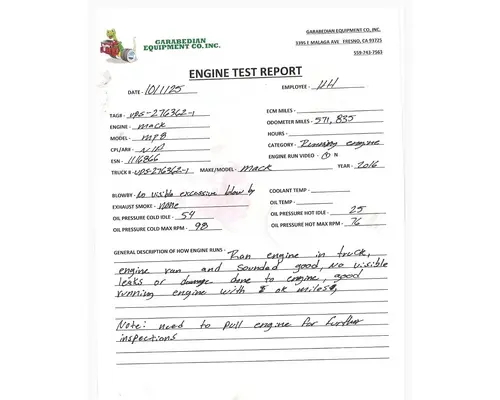 GARABEDIAN
EQUIPMENT CO. INC.
GARABEDIAN EQUIPMENT CO, INC.
3395 E MALAGA AVE FRESNO, CA 93725
559-743-7561
ENGINE TEST REPORT
DATE - 10/1/25 EMPLOYEE - HH
TAG# - UPS-276362-1 ECM MILES -
ENGINE - Mack ODOMETER MILES - 571,835
MODEL - MP8 HOURS -
CPL/AR# - N/A CATEGORY - Running engine
ESN - 1116866 ENGINE RUN VIDEO - Y N
TRUCK # - UPS-276362-1 MAKE/MODEL - Mack YEAR - 2016
BLOWBY - no visible excessive blow by COOLANT TEMP -
EXHAUST SMOKE - none OIL TEMP -
OIL PRESSURE COLD IDLE - 54 OIL PRESSURE HOT IDLE - 25
OIL PRESSURE COLD MAX RPM - 98 OIL PRESSURE HOT MAX RPM - 76
GENERAL DESCRIPTION OF HOW ENGINE RUNS - Ran engine in truck,
engine ran and sounded good, no visible
leaks or damage done to engine, good
running engine with ok miles,
Note: need to pull engine for further
inspections